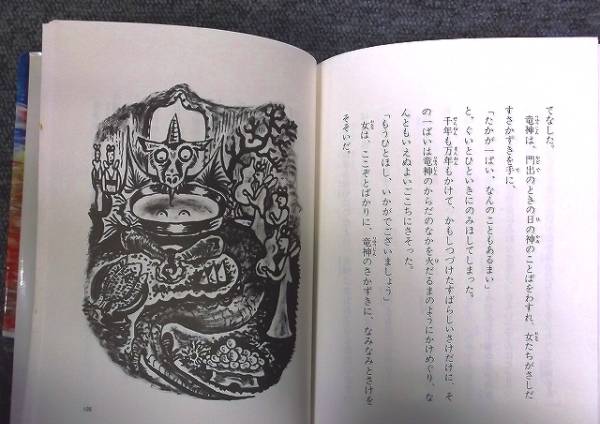 てなした。
竜神は、門出のときの日の神のことばをわすれ、女たちがさしだ
すさかずきを手に、
「たかが一ぱい、なんのこともあるまい」
と、ぐいとひといきにのみほしてしまった。
千年も万年もかけて、かもしつづけたすばらしいさけだけに、そ
の一ぱいは竜神のからだのなかを火だるまのようにかけめぐり、な
んともいえぬよいここちにさそった。
「もうひとほし、いかがでございましょう」
女は、ここぞとばかりに、竜神のさかずきに、なみなみとさけを
そそいだ。